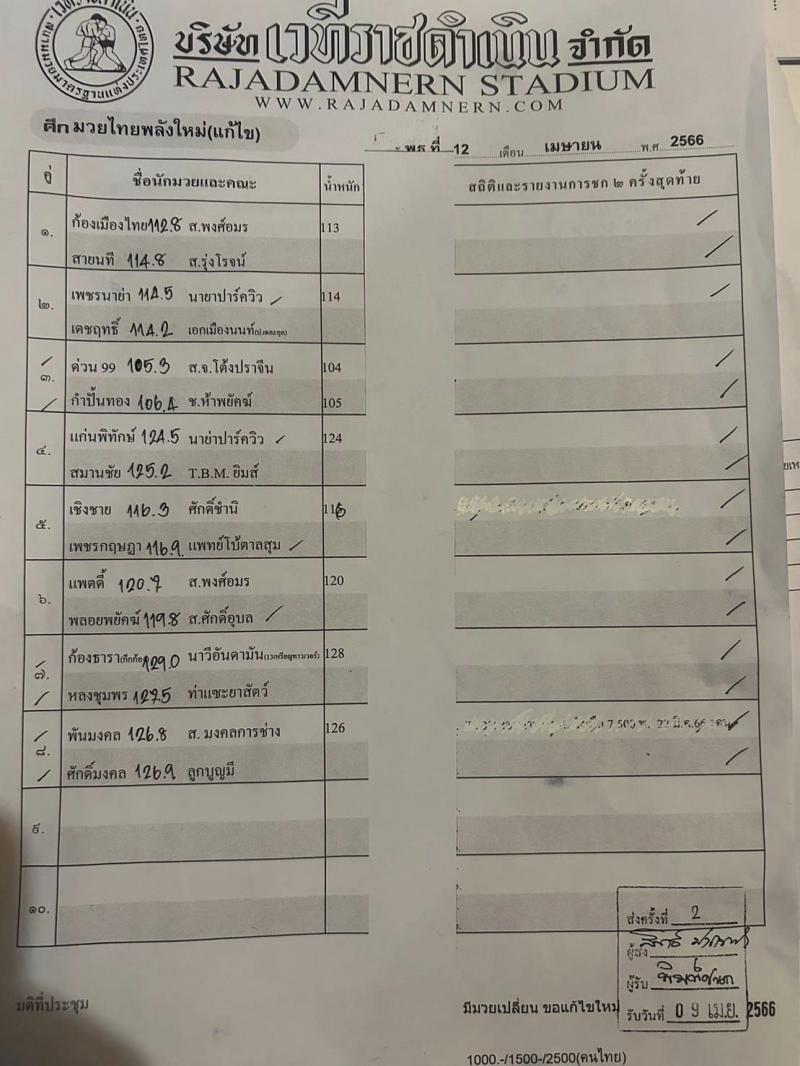 บริษัท เวทีราชดำเนิน จำกัด
RAJADAMNERN STADIUM
WWW.RAJADAMNERN.COM
ศึก มวยไทยพลังใหม่(แก้ไข)
พุธ ที่ 12 เดือน เมษายน พ.ศ. 2566
คู่ ชื่อนักมวยและคณะ น้ำหนัก สถิติและรายงานการชก ๒ ครั้งสุดท้าย
๑.
ก้องเมืองไทย 112.8 ส.พงศ์อมร 113
สายนที 114.8 ส.รุ่งโรจน์
๒.
เพชรนาย่า 114.5 นายาปาร์ควิว 114
เดชฤทธิ์ 114.2 เอกเมืองนนท์
๓.
ด่วน 99 105.3 ส.จ.โต้งปราจีน 104
กำปั้นทอง 106.4 ช.ห้าพยัคฆ์ 105
๔.
แก่นพิทักษ์ 124.5 นาย่าปาร์ควิว 124
สมานชัย 125.2 T.B.M. ยิมส์
๕.
เชิงชาย 116.3 ศักดิ์ชำนิ 116
เพชรกฤษฎา 116.9 แพทย์โบ้ตาลสุม
๖.
แพตตี้ 120.7 ส.พงศ์อมร 120
พลอยพยัคฆ์ 119.8 ส.ศักดิ์อุบล
๗.
ก้องธารา 129.0 นาวีอันดามัน 128
หลงชุมพร 127.5 ท่าแซะยาสัตว์
๘.
พันมงคล 126.8 ส. มงคลการช่าง 126
ศักดิ์มงคล 126.9 ลูกบูญมี
๙.
๑๐.
ส่งครั้งที่ 2
ผู้ส่ง
ผู้รับ
รับวันที่ 09 เม.ย. 2566
มติที่ประชุม
มีมวยเปลี่ยน ขอแก้ไขใหม่
1000.-/1500-/2500(คนไทย)